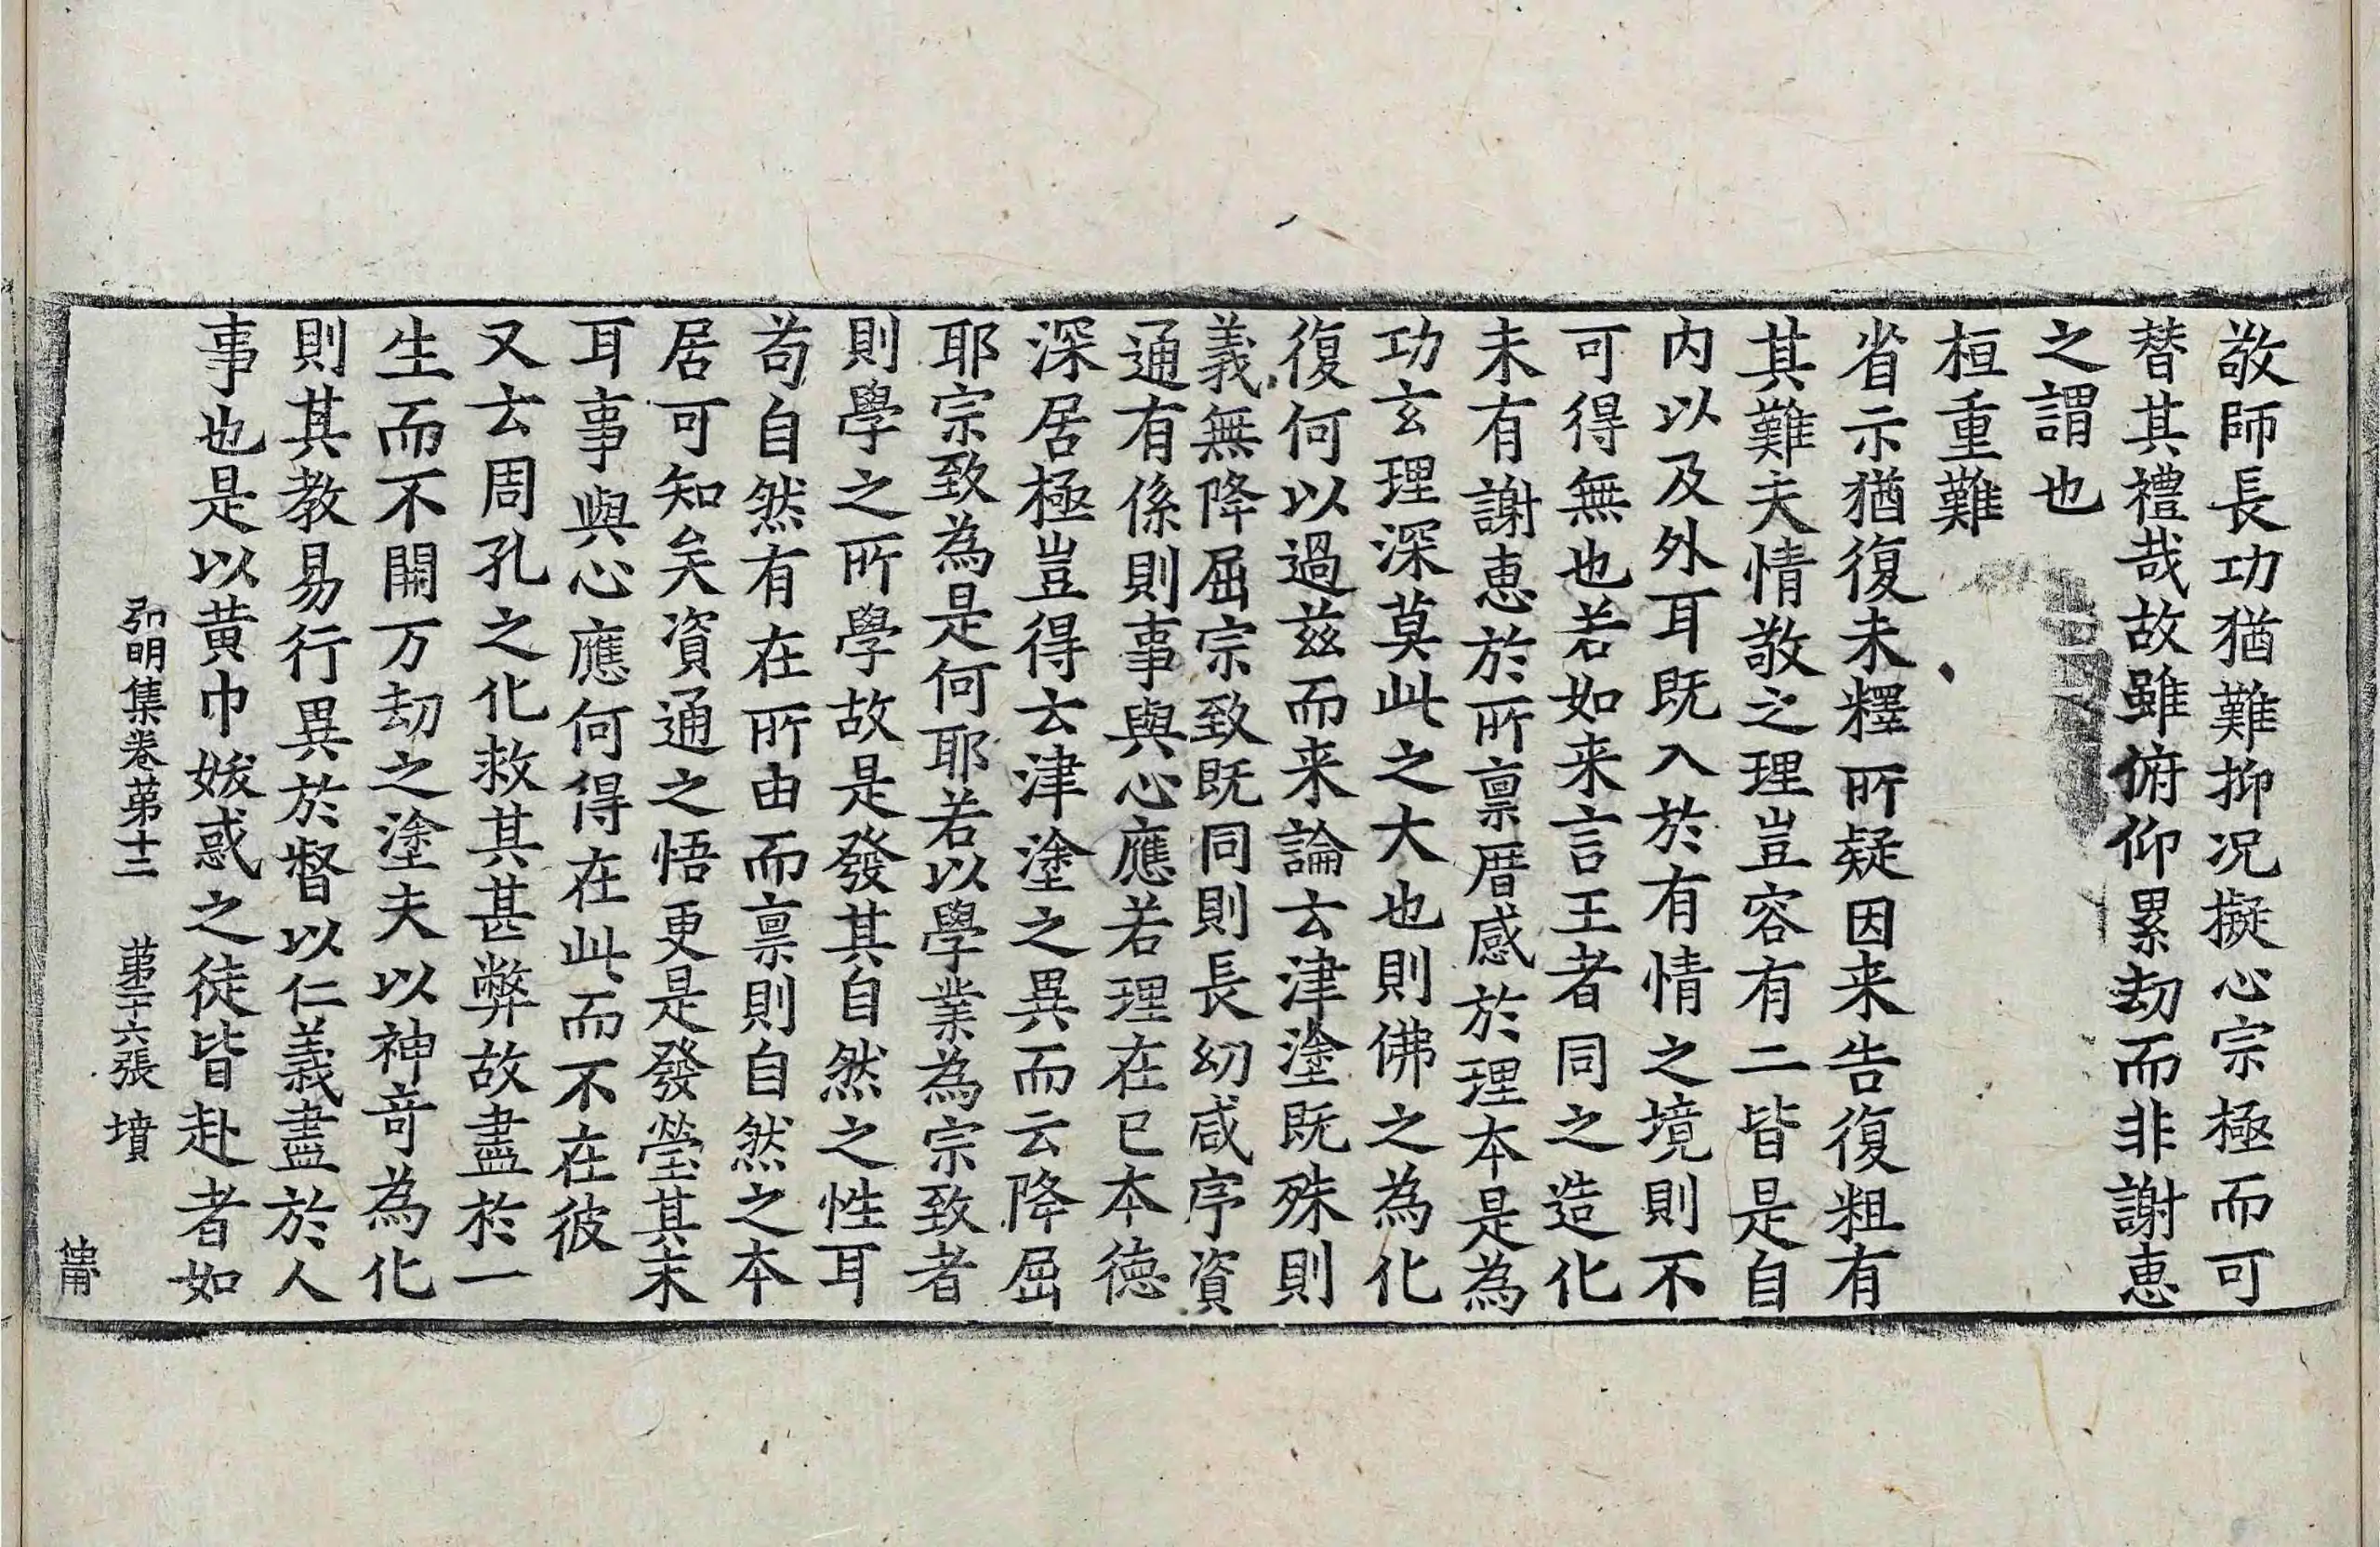 敬師長功猶難抑况擬心宗極而可
替其禮哉故雖俯仰累劫而非謝恵
之謂也
桓重難
省示猶復未釋所疑因来告復粗有
其難夫情敬之理豈容有二皆是自
内以及外耳既入於有情之境則不
可得無也若如来言王者同之造化
未有謝恵於所稟厝感於理本是為
功玄理深莫此之大也則佛之為化
復何以過兹而来論云津塗既殊則
義無降屈宗致既同則長幼咸序資
通有係則事與心應若理在已本徳
深居極豈得云津塗之異而云降屈
耶宗致為是何耶若以學業為宗致者
則學之所學故是發其自然之性耳
苟自然有在所由而稟則自然之本
居可知矣資通之悟更是發瑩其末
耳事與心應何得在此而不在彼
又云周孔之化救其甚弊故盡於一
生而不開万劫之塗夫以神竒為化
則其教易行異於督以仁義盡於人
事也是以黄巾妖惑之徒皆赴者如
弘明集卷第十二　第十六張　墳